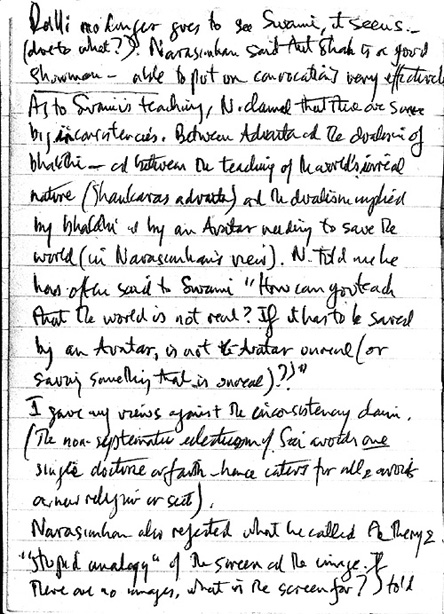 no longer goes to see Swami, it seems –
(due to what?). Narasimhan said that Shah is a good
showman – able to put on convocations very effectively
As to Swami's teaching, N. claimed that there are some
big inconsistencies. Between Advaita and the dualism of
bhakthi – and between the teaching of the world's unreal
nature (Shankaras advaita) and the dualism implied
by bhakthi & by an Avatar needing to save the
world (in Narasimhan's view). N. told me he
has often said to Swami "How can you teach
that the world is not real? If it has to be saved
by an Avatar, is not the Avatar unreal (or
saving something that is unreal)?"
I gave my views against the inconsistency claim.
(The non-systematic eclecticism of Sai avoids one
single doctrine or faith – hence caters for all & avoids
a new religion or sect).
Narasimhan also rejected what he called
"stupid analogy" of the screen and the image. If
there are no images, what is the screen for?) told